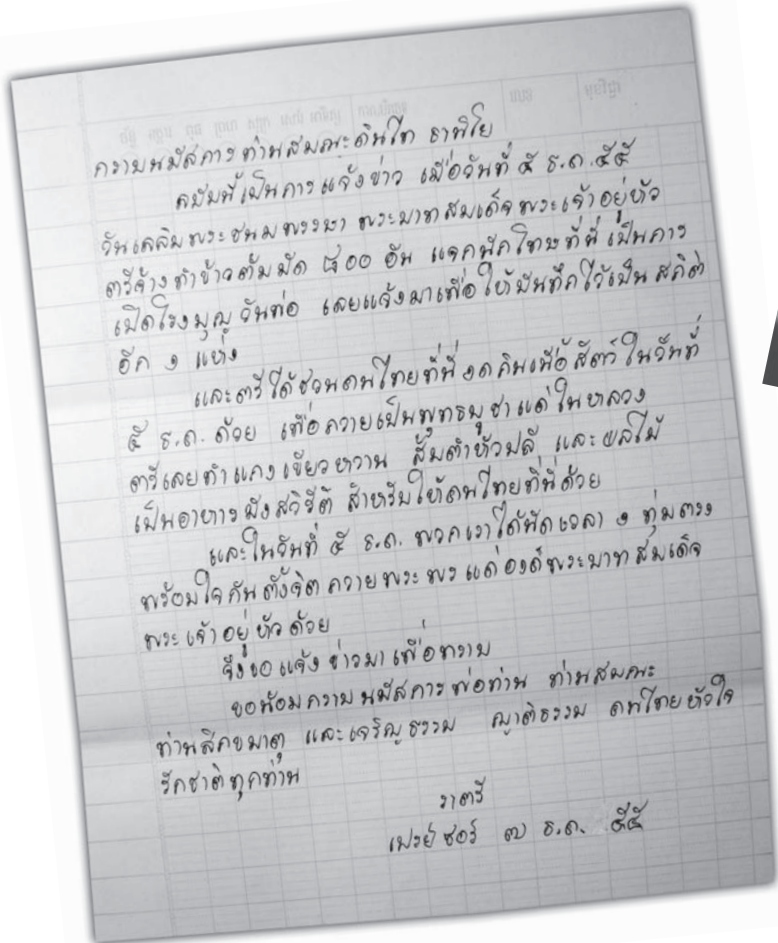 กราบนมัสการท่านสมณะดินไท ธานิโย
ฉบับนี้เป็นการแจ้งข่าว เมื่อวันที่ ๕ ธ.ค. ๕๕
วันเฉลิมพระชนมพรรษา พระบาทสมเด็จพระเจ้าอยู่หัว
ตรีจ้างทำข้าวต้มมัด ๘๐๐ อัน แจกนักโทษที่นี่ เป็นการ
เปิดโรงบุญวันพ่อ เลยแจ้งมาเพื่อให้บันทึกไว้เป็นสถิติ
อีก ๑ แห่ง
และตรีได้ชวนคนไทยที่นี่งดกินเนื้อสัตว์ในวันที่
๕ ธ.ค. ด้วย เพื่อถวายเป็นพุทธบูชาแด่ในหลวง
ตรีเลยทำแกงเขียวหวาน ส้มตำหัวปลี และผลไม้
เป็นอาหารมังสวิรัติ สำหรับให้คนไทยที่นี่ด้วย
และในวันที่ ๕ ธ.ค. พวกเราได้นัดเวลา ๑ ทุ่มตรง
พร้อมใจกันตั้งจิตถวายพระพรแด่องค์พระบาทสมเด็จ
พระเจ้าอยู่หัวด้วย
จึงขอแจ้งข่าวมาเพื่อทราบ
ขอน้อมกราบนมัสการพ่อท่าน ท่านสมณะ
ท่านสิกขมาตุ และเจริญธรรม ญาติธรรม คนไทยหัวใจ
รักชาติทุกท่าน
ราตรี
เปรย์ซอว์ ๗ ธ.ค. ๕๕